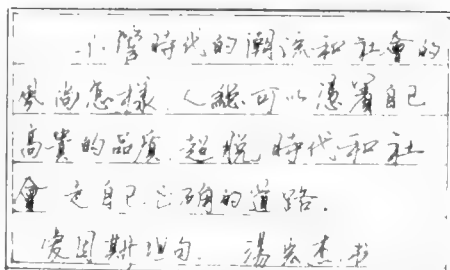 不管時代的潮流和社會的
風尚怎樣，人總可以憑着自己
高貴的品質，超脫時代和社
會，走自己正確的道路。
愛因斯坦句 湯宏杰书